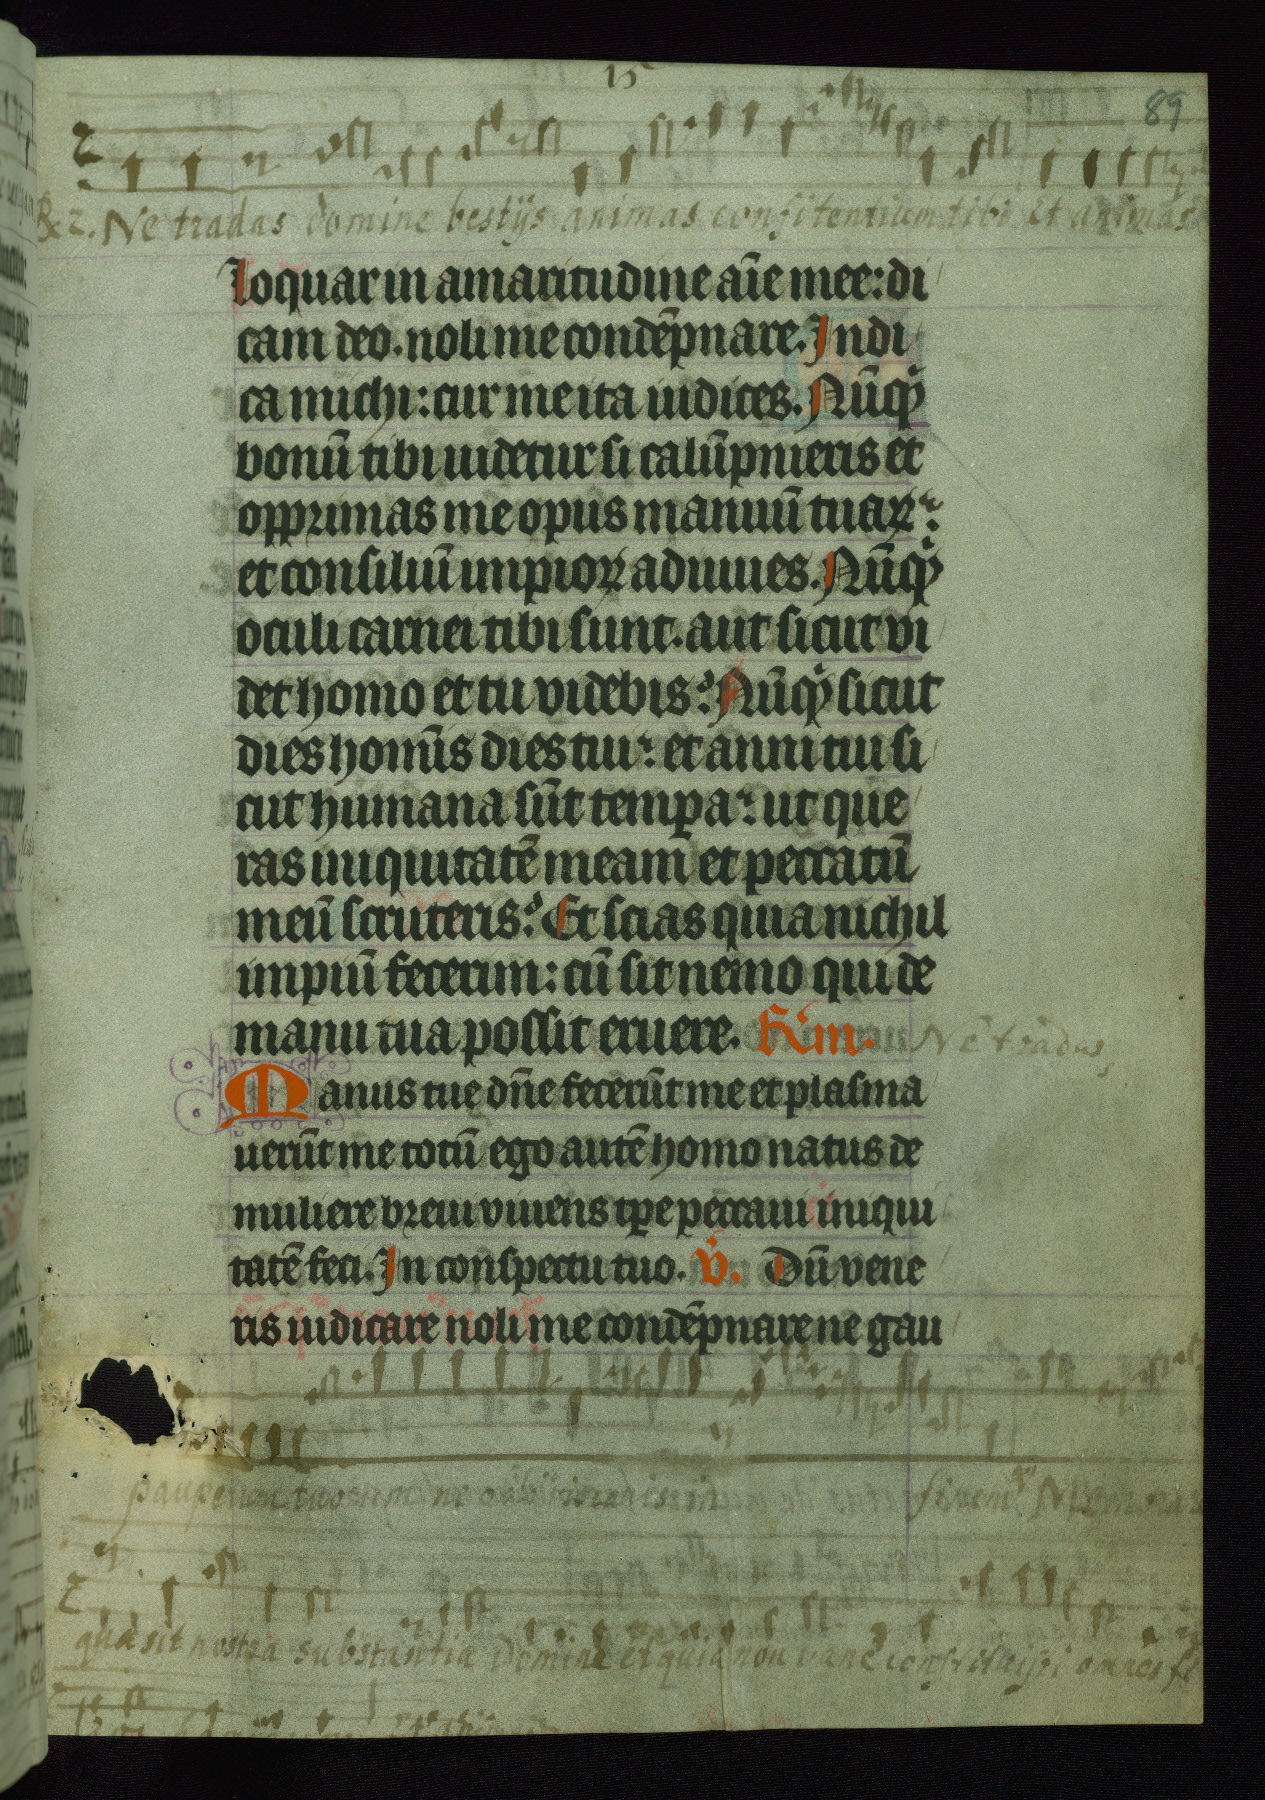 15
89
R. 2. Ne tradas domine bestijs animas confitentium tibi Et animas
loquar in amaritudine aīe mee: di
cam deo. noli me condēpnare. Indi
ca michi: cur me ita iudices. Nūqͥd
bonū tibi uidetur si calūpnieris et
opprimas me opus manuū tuaꝝ:
et consiliū impioꝝ adiuues. Nūqͥd
oculi carnei tibi sunt. aut sicut vi
det homo et tu videbis: Nūqͥd sicut
dies homīs dies tui: et anni tui si
cut humana sūt tempa: ut que
ras iniquitatē meam et peccatū
meū scruteris: Et scias quia nichil
impiū fecerim: cū sit nemo qui de
manu tua possit eruere.
Ne tradas
Manus tue dn̄e fecerūt me et plasma
uerūt me totū ego autē homo natus de
muliere breui viuens tp̄e peccaui iniqui
tatē feci. In conspectu tuo. v̄. Dū vene
ris iudicare noli me condēpnare ne gau
pauperum tuorum ne obliviscaris in finem Memorare
quae sit nostra substantia Domine et quia non vane constituisti omnes fi